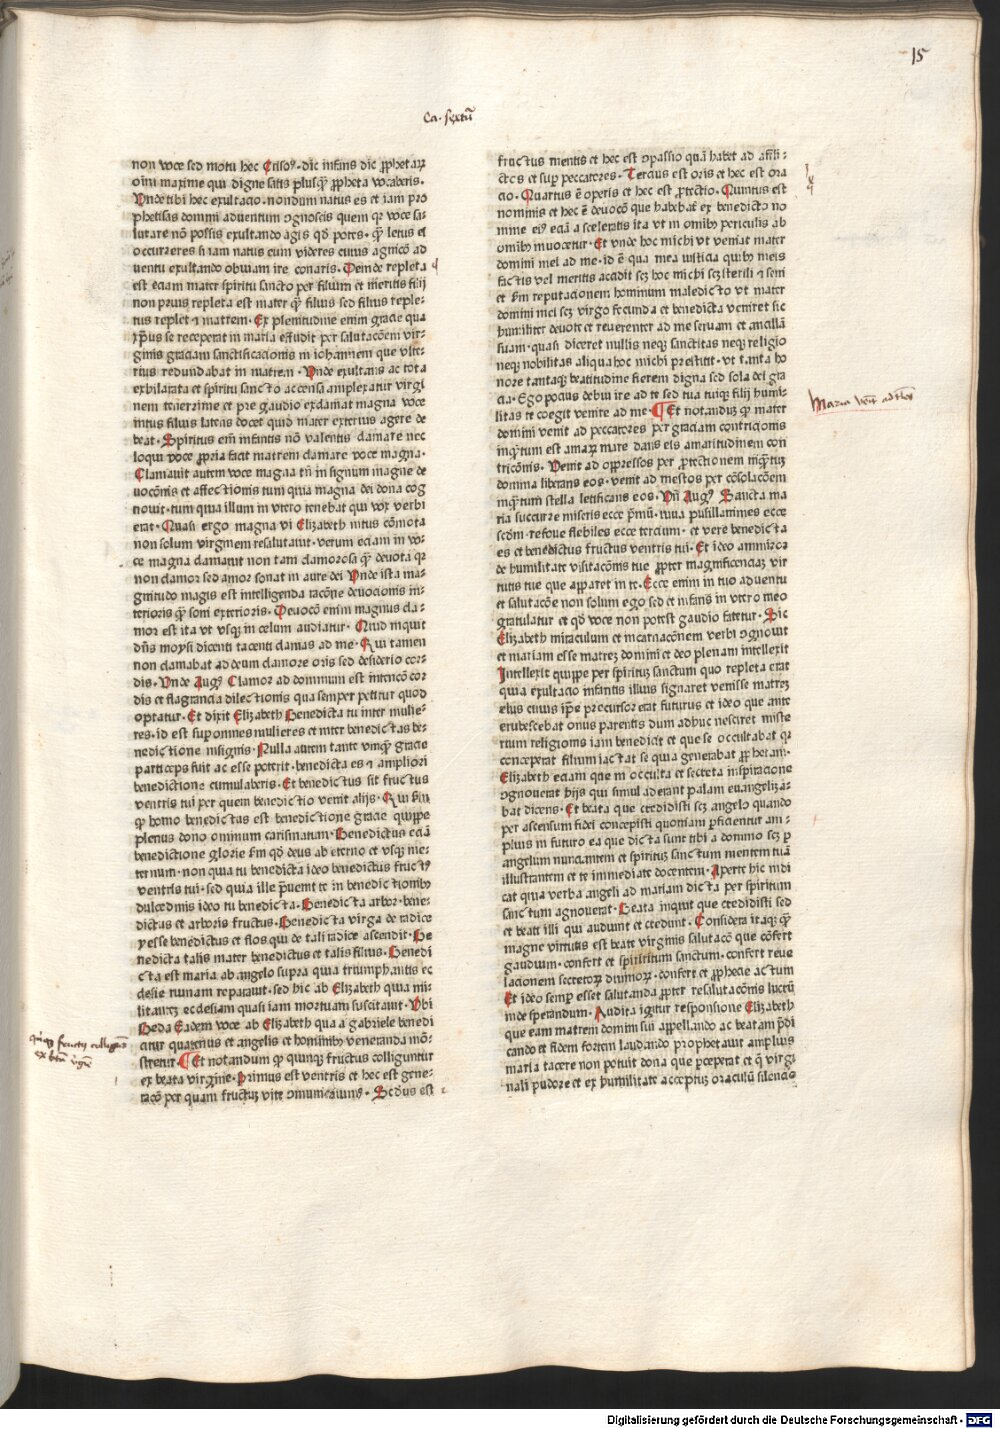 15
Ca. sextū
non voce sed motu hec Crisos. dic infans dic ꝓphetaꝝ
oīm maxime qui digne satis plusq̄ ꝓpheta vocaberis.
Vnde tibi hec exultacio. nondum natus es et iam pro
phetisas domini aduentum ꝯgnoscis quem qꝛ voce sa-
lutare nō possis exultando agis qd potes. q̄ letus ei
occurreres si iam natus eum videres cuius agnicō ad
uentu exultando obuiam ire conaris. Deinde repleta
est eciam mater spiritu sancto per filium et meritis filij
non prius repleta est mater q̄ filius sed filius reple-
tus replet ⁊ matrem. Ex plenitudine enim gracie qua
xp̄us se receperat in maria effudit per salutacōem vir-
ginis graciam sanctificacionis in iohannem que vlte-
rius redundabat in matrem. Vnde exultans ac tota
exhilarata et spiritu sancto accensa amplexatur virgi
nem tenerrime et pre gaudio exclamat magna voce
intus filius latens docet quid mater exterius agere de
beat. Spiritus em̄ infantis nō valentis clamare nec
loqui voce ꝓpria facit matrem clamare voce magna.
Clamauit autem voce magna tū in signum magne de
uocōnis et affectionis tum quia magna dei dona cog
nouit. tum quia illum in vtero tenebat qui vox verbi
erat. Quasi ergo magna vi Elizabeth intus cōmota
non solum virginem resalutauit. verum eciam in vo-
ce magna clamauit non tam clamorosa q̄ deuota qꝛ
non clamor sed amor sonat in aure dei Vnde ista ma-
gnitudo magis est intelligenda racōne deuocionis in-
terioris q̄ soni exterioris. Deuocō enim magnus cla-
mor est ita vt vsqꝫ in celum audiatur. Quid inquit
dn̄s moysi dicenti tacenti clamas ad me. Qui tamen
non clamabat ad deum clamore oris sed desiderio cor-
dis. Vnde Augꝰ Clamor ad dominum est intencō cor
dis et flagrancia dilectionis qua semper petitur quod
optatur. Et dixit Elizabeth Benedicta tu inter mulie-
res. id est sup omnes mulieres et inter benedictas be-
nedictione insignis. Nulla autem tante vmqꝫ gracie
particeps fuit ac esse poterit. benedicta es ⁊ ampliori
benedictione cumulaberis. Et benedictus sit fructus
ventris tui per quem benedictio venit alijs. Qui sm̄
qꝫ homo benedictus est benedictione gracie quippe
plenus dono omnium carismatum. Benedictus eciā
benedictione glorie sm̄ qd deus ab eterno et vsqꝫ ne-
ternum. non quia tu benedicta ideo benedictus fructꝰ
ventris tui. sed quia ille p̄uenit te in benedictionibꝫ
dulcedinis ideo tu benedicta. Benedicta arbor. bene-
dictus et arboris fructus. Benedicta virga de radice
yesse benedictus et flos qui de tali radice ascendit. Be
nedicta talis mater benedictus et talis filius. Benedi
cta est maria ab angelo supra quia triumphantis ec
clesie ruinam reparauit. sed hic ab Elizabeth quia mi-
litantꝫ ecclesiam quasi iam mortuam suscitauit. Vbi
Beda Eadem voce ab Elizabeth qua a gabriele benedi
citur quatenus et angelis et hominibꝫ veneranda mō-
stretur. ¶ Et notandum qꝫ quinqꝫ fructus colliguntur
ex beata virgine. Primus est ventris et hec est gene-
racō per quam fructuꝫ vite ꝯmunicauimꝰ. Secdus est
fructus mentis et hec est ꝯpassio quā habet ad affli-
ctos et suꝑ peccatores. Tercius est oris et hec est ora
cio. Quartus ē operis et hec est ꝓtectio. Quintus est
nominis et hec ē deuocō que habebat̄ ex benedicto no
mine eiꝰ eciā a sceleratis ita vt in omibꝫ periculis ab
omibꝫ inuocetur. Et vnde hoc michi vt veniat mater
domini mei ad me. id ē qua mea iusticia quibꝫ meis
factis vel meritis accidit scꝫ hoc michi scꝫ sterili ⁊ seni
et sm̄ reputacionem hominum maledicto vt mater
domini mei scꝫ virgo fecunda et benedicta veniret sic
humiliter deuote et reuerenter ad me seruam et ancillā
suam. quasi diceret nullis neqꝫ sanctitas neqꝫ religio
neqꝫ nobilitas aliqua hoc michi prestitit. vt tanta ho
nore tantaqꝫ beatitudine fierem digna sed sola dei gra
cia. Ego pocius debui ire ad te sed tua tuiqꝫ filij humi-
litas te coegit venire ad me. ¶ Et notanduꝫ qꝫ mater
domini venit ad peccatores per graciam contricionis
inqꝫtum est amaꝝ mare dans eis amaritudinem con
tricōnis. Venit ad oppressos per ꝓtectionem inqꝫtuꝫ
domina liberans eos. venit ad mestos per cōsolacōem
inqꝫtum stella letificans eos. Vn̄ Augꝰ Sancta ma
ria succurre miseris ecce pͥmū. iuua pusillanimes ecce
scdm. refoue flebiles ecce tercium. et vere benedicta
es et benedictus fructus ventris tui. Et ideo ammiror
de humilitate visitacōnis tue ꝓpter magnificenciaꝫ vir
tutis tue que apparet in te. Ecce enim in tuo aduentu
et salutacōe non solum ego sed et infans in vtero meo
gratulatur et qd voce non potest gaudio fatetur. Sic
Elizabeth miraculum et incarnacōnem verbi ꝯgnouit
et mariam esse matreꝫ domini et deo plenam intellexit
Intellexit quippe per spirituꝫ sanctum quo repleta erat
quia exultacio infantis illius signaret venisse matreꝫ
eius cuius ip̄e precursor erat futurus et ideo que ante
erubescebat onus parentis dum adhuc nesciret miste
rium religionis iam benedicit et que se occultabat qꝛ
conceperat filium iactat se quia generabat ꝓphetam.
Elizabeth eciam que in occulta et secreta inspiracione
ꝯgnouerat hijs qui simul aderant palam euangeliza-
bat dicens. Et beata que credidisti scꝫ angelo quando
per ascensum fidei concepisti quoniam ꝑficientur am-
plius in futuro ea que dicta sunt tibi a domino scꝫ ꝑ
angelum nunciantem et spirituꝫ sanctum mentem tuā
illustrantem et te immediate docentem. Aperte hic indi
cat quia verba angeli ad mariam dicta per spiritum
sanctum agnouerat. Beata inquit que credidisti sed
et beati illi qui audiunt et credunt. Considera itaqꝫ q̄
magne virtutis est beate virginis salutacō que cōfert
gaudium. confert et spirititum sanctum. confert reue
lacionem secretoꝝ diuinoꝝ. confert et ꝓphecie actum
Et ideo semꝑ esset salutanda ꝓpter resalutacōnis lucrū
inde sperandum. Audita igitur responsione Elizabeth
que eam matrem domini sui appellando ac beatam p̄di
cando et fidem fortem laudando prophetauit amplius
maria tacere non potuit dona que ꝑceperat et q̄ virgi
nali pudore et ex humilitate acceptuꝫ oraculū silencio